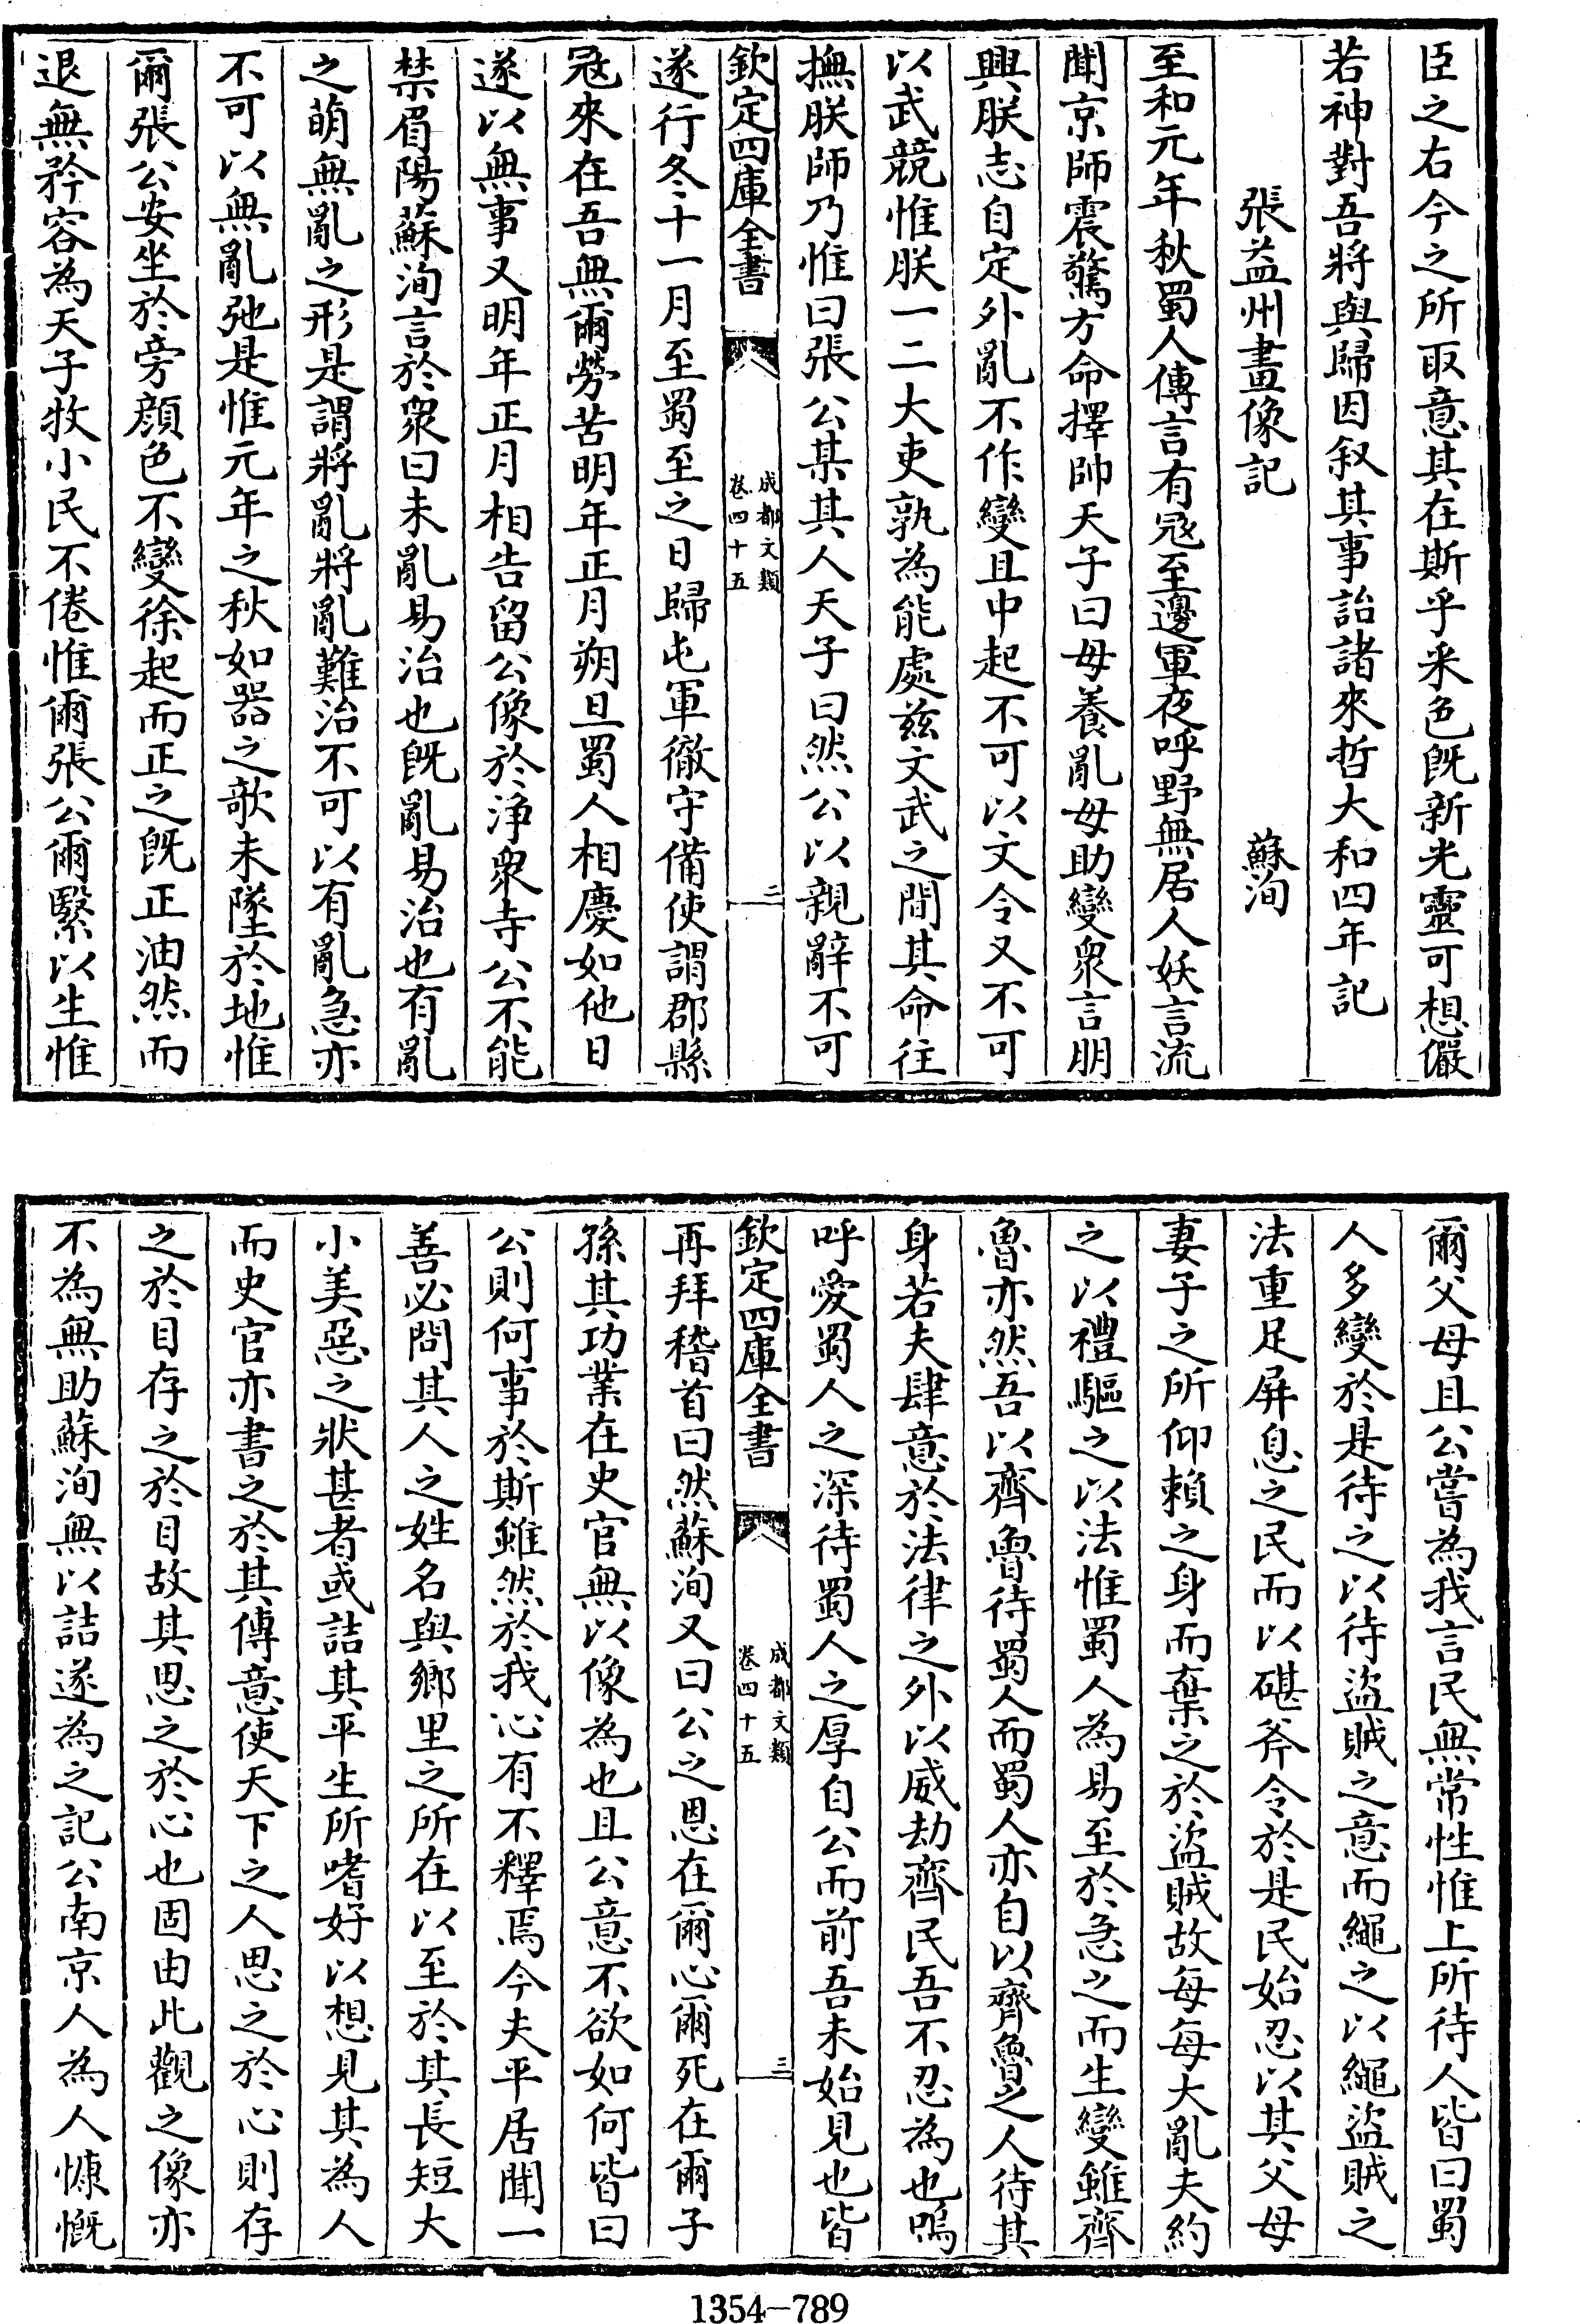 臣之右今之所取意其在斯乎采色旣新光靈可想儼
若神對吾將與歸因叙其事詒諸來哲大和四年記
張益州畫像記 蘇洵
至和元年秋蜀人傳言有冦至邊軍夜呼野無居人妖言流
聞京師震驚方命擇帥天子曰毋養亂毋助變衆言朋
興朕志自定外亂不作變且中起不可以文令又不可
以武競惟朕一二大吏孰為能處兹文武之間其命往
撫朕師乃惟曰張公某其人天子曰然公以親辭不可
欽定四庫全書
成都文類
卷四十五
二
遂行冬十一月至蜀至之日歸屯軍徹守備使謂郡縣
冦來在吾無爾勞苦明年正月朔旦蜀人相慶如他日
遂以無事又明年正月相告留公像於浄衆寺公不能
禁眉陽蘇洵言於衆曰未亂易治也旣亂易治也有亂
之萌無亂之形是謂將亂將亂難治不可以有亂急亦
不可以無亂弛是惟元年之秋如器之欹未墜於地惟
爾張公安坐於旁顔色不變徐起而正之旣正油然而
退無矜容為天子牧小民不倦惟爾張公爾繄以生惟
爾父母且公嘗為我言民無常性惟上所待人皆曰蜀
人多變於是待之以待盜賊之意而繩之以繩盜賊之
法重足屏息之民而以碪斧令於是民始忍以其父母
妻子之所仰賴之身而棄之於盜賊故每每大亂夫約
之以禮驅之以法惟蜀人為易至於急之而生變雖齊
魯亦然吾以齊魯待蜀人而蜀人亦自以齊魯之人待其
身若夫肆意於法律之外以威劫齊民吾不忍為也嗚
呼愛蜀人之深待蜀人之厚自公而前吾未始見也皆
欽定四庫全書
成都文類
卷四十五
三
再拜稽首曰然蘇洵又曰公之恩在爾心爾死在爾子
孫其功業在史官無以像為也且公意不欲如何皆曰
公則何事於斯雖然於我心有不釋焉今夫平居聞一
善必問其人之姓名與鄉里之所在以至於其長短大
小美惡之狀甚者或詰其平生所嗜好以想見其為人
而史官亦書之於其傳意使天下之人思之於心則存
之於目存之於目故其思之於心也固由此觀之像亦
不為無助蘇洵無以詰遂為之記公南京人為人慷慨
1354—789